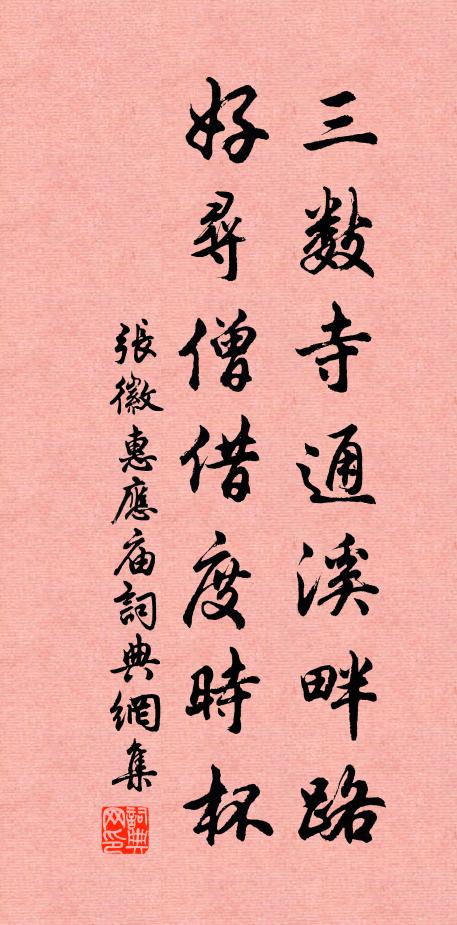 三數寺通溪畔路
好尋僧借度時杯
張徽惠應庙詞典網集
詞典网印